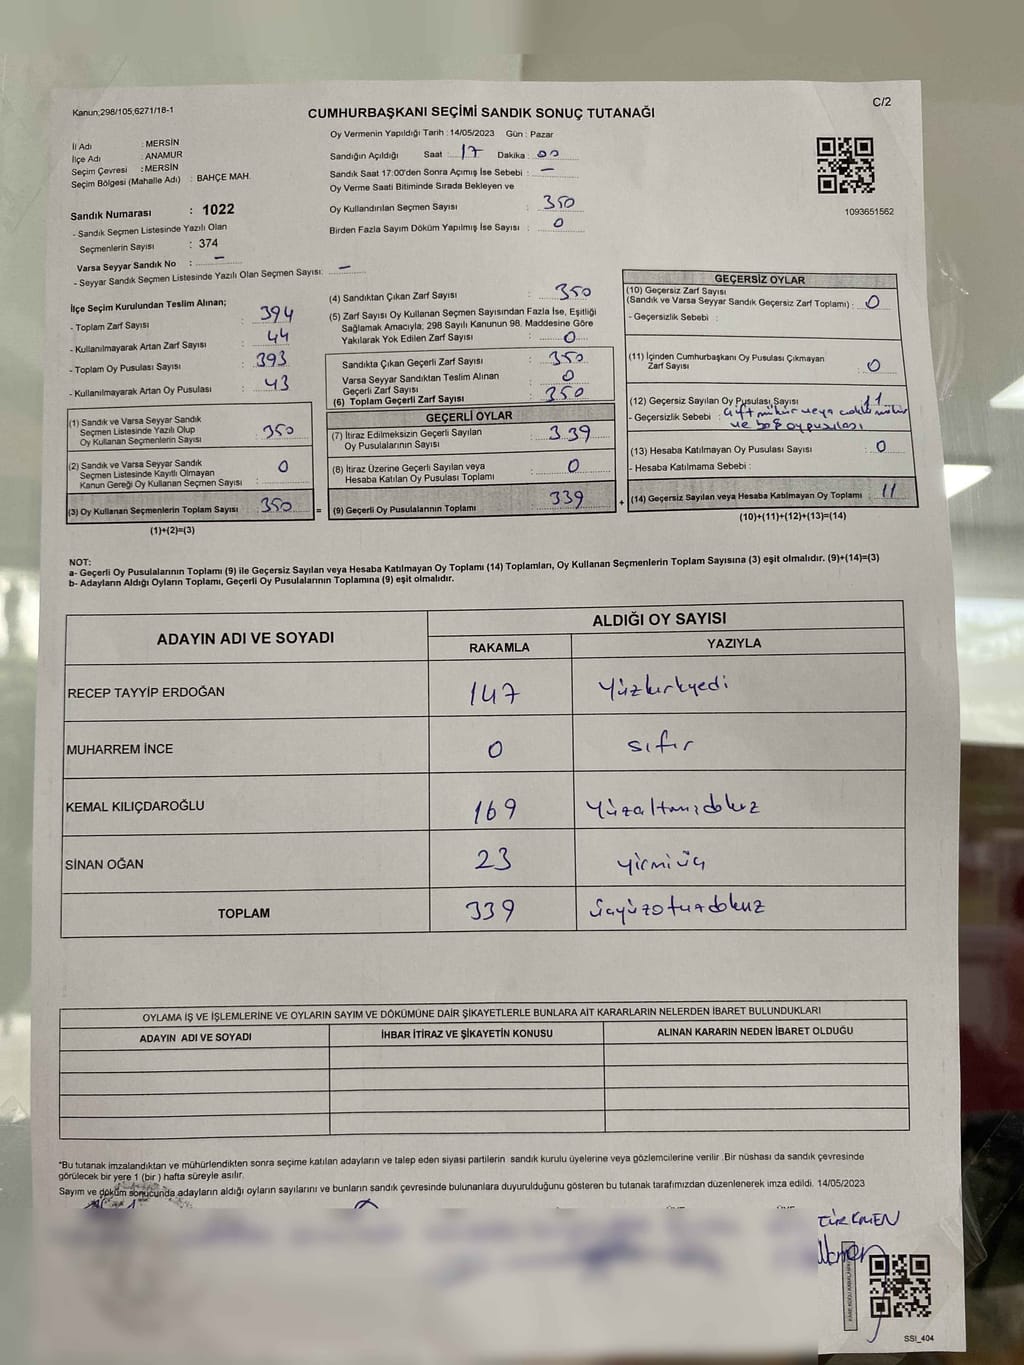 Kanun;298/105;6271/18-1
C/2
CUMHURBAŞKANI SEÇİMİ SANDIK SONUÇ TUTANAĞI
Oy Vermenin Yapıldığı Tarih : 14/05/2023 Gün : Pazar
İl Adı : MERSİN
İlçe Adı : ANAMUR
Seçim Çevresi : MERSİN
Seçim Bölgesi (Mahalle Adı) : BAHÇE MAH.
Sandığın Açıldığı Saat : 17 Dakika : 00
Sandık Saat 17:00'den Sonra Açımış İse Sebebi : -
Oy Verme Saati Bitiminde Sırada Bekleyen ve
Oy Kullandırılan Seçmen Sayısı : 350
Birden Fazla Sayım Döküm Yapılmış İse Sayısı : 0
1093651562
Sandık Numarası : 1022
- Sandık Seçmen Listesinde Yazılı Olan
Seçmenlerin Sayısı : 374
Varsa Seyyar Sandık No : -
- Seyyar Sandık Seçmen Listesinde Yazılı Olan Seçmen Sayısı: -
İlçe Seçim Kurulundan Teslim Alınan;
- Toplam Zarf Sayısı : 394
- Kullanılmayarak Artan Zarf Sayısı : 44
- Toplam Oy Pusulası Sayısı : 393
- Kullanılmayarak Artan Oy Pusulası : 43
(1) Sandık ve Varsa Seyyar Sandık
Seçmen Listesinde Yazılı Olup
Oy Kullanan Seçmenlerin Sayısı : 350
(2) Sandık ve Varsa Seyyar Sandık
Seçmen Listesinde Kayıtlı Olmayan
Kanun Gereği Oy Kullanan Seçmen Sayısı : 0
(3) Oy Kullanan Seçmenlerin Toplam Sayısı : 350 =
(1)+(2)=(3)
(4) Sandıktan Çıkan Zarf Sayısı : 350
(5) Zarf Sayısı Oy Kullanan Seçmen Sayısından Fazla İse, Eşitliği
Sağlamak Amacıyla; 298 Sayılı Kanunun 98. Maddesine Göre
Yakılarak Yok Edilen Zarf Sayısı : 0
Sandıkta Çıkan Geçerli Zarf Sayısı : 350
Varsa Seyyar Sandıktan Teslim Alınan
Geçerli Zarf Sayısı : 0
(6) Toplam Geçerli Zarf Sayısı : 350
GEÇERLİ OYLAR
(7) İtiraz Edilmeksizin Geçerli Sayılan
Oy Pusulalarının Sayısı : 339
(8) İtiraz Üzerine Geçerli Sayılan veya
Hesaba Katılan Oy Pusulası Toplamı : 0
(9) Geçerli Oy Pusulalarının Toplamı : 339 +
GEÇERSİZ OYLAR
(10) Geçersiz Zarf Sayısı
(Sandık ve Varsa Seyyar Sandık Geçersiz Zarf Toplamı) : 0
- Geçersizlik Sebebi :
(11) İçinden Cumhurbaşkanı Oy Pusulası Çıkmayan
Zarf Sayısı : 0
(12) Geçersiz Sayılan Oy Pusulası Sayısı : 11
- Geçersizlik Sebebi : Çift mühür veya
ve boş oy pusulası
(13) Hesaba Katılmayan Oy Pusulası Sayısı : 0
- Hesaba Katılmama Sebebi :
(14) Geçersiz Sayılan veya Hesaba Katılmayan Oy Toplamı : 11
(10)+(11)+(12)+(13)=(14)
NOT:
a- Geçerli Oy Pusulalarının Toplamı (9) ile Geçersiz Sayılan veya Hesaba Katılmayan Oy Toplamı (14) Toplamları, Oy Kullanan Seçmenlerin Toplam Sayısına (3) eşit olmalıdır. (9)+(14)=(3)
b- Adayların Aldığı Oyların Toplamı, Geçerli Oy Pusulalarının Toplamına (9) eşit olmalıdır.
ADAYIN ADI VE SOYADI ALDIĞI OY SAYISI
RAKAMLA YAZIYLA
RECEP TAYYİP ERDOĞAN 147 Yüzkırkyedi
MUHARREM İNCE 0 sıfır
KEMAL KILIÇDAROĞLU 169 Yüzaltmışdokuz
SİNAN OĞAN 23 yirmiüç
TOPLAM 339 üçyüzotuzdokuz
OYLAMA İŞ VE İŞLEMLERİNE VE OYLARIN SAYIM VE DÖKÜMÜNE DAİR ŞİKAYETLERLE BUNLARA AİT KARARLARIN NELERDEN İBARET BULUNDUKLARI
ADAYIN ADI VE SOYADI İHBAR İTİRAZ VE ŞİKAYETİN KONUSU ALINAN KARARIN NEDEN İBARET OLDUĞU
*Bu tutanak imzalandıktan ve mühürlendikten sonra seçime katılan adayların ve talep eden siyasi partilerin sandık kurulu üyelerine veya gözlemcilerine verilir .Bir nüshası da sandık çevresinde
görülecek bir yere 1 (bir ) hafta süreyle asılır.
Sayım ve döküm sonucunda adayların aldığı oyların sayılarını ve bunların sandık çevresinde bulunanlara duyurulduğunu gösteren bu tutanak tarafımızdan düzenlenerek imza edildi. 14/05/2023
TÜRKMEN
SSI_404